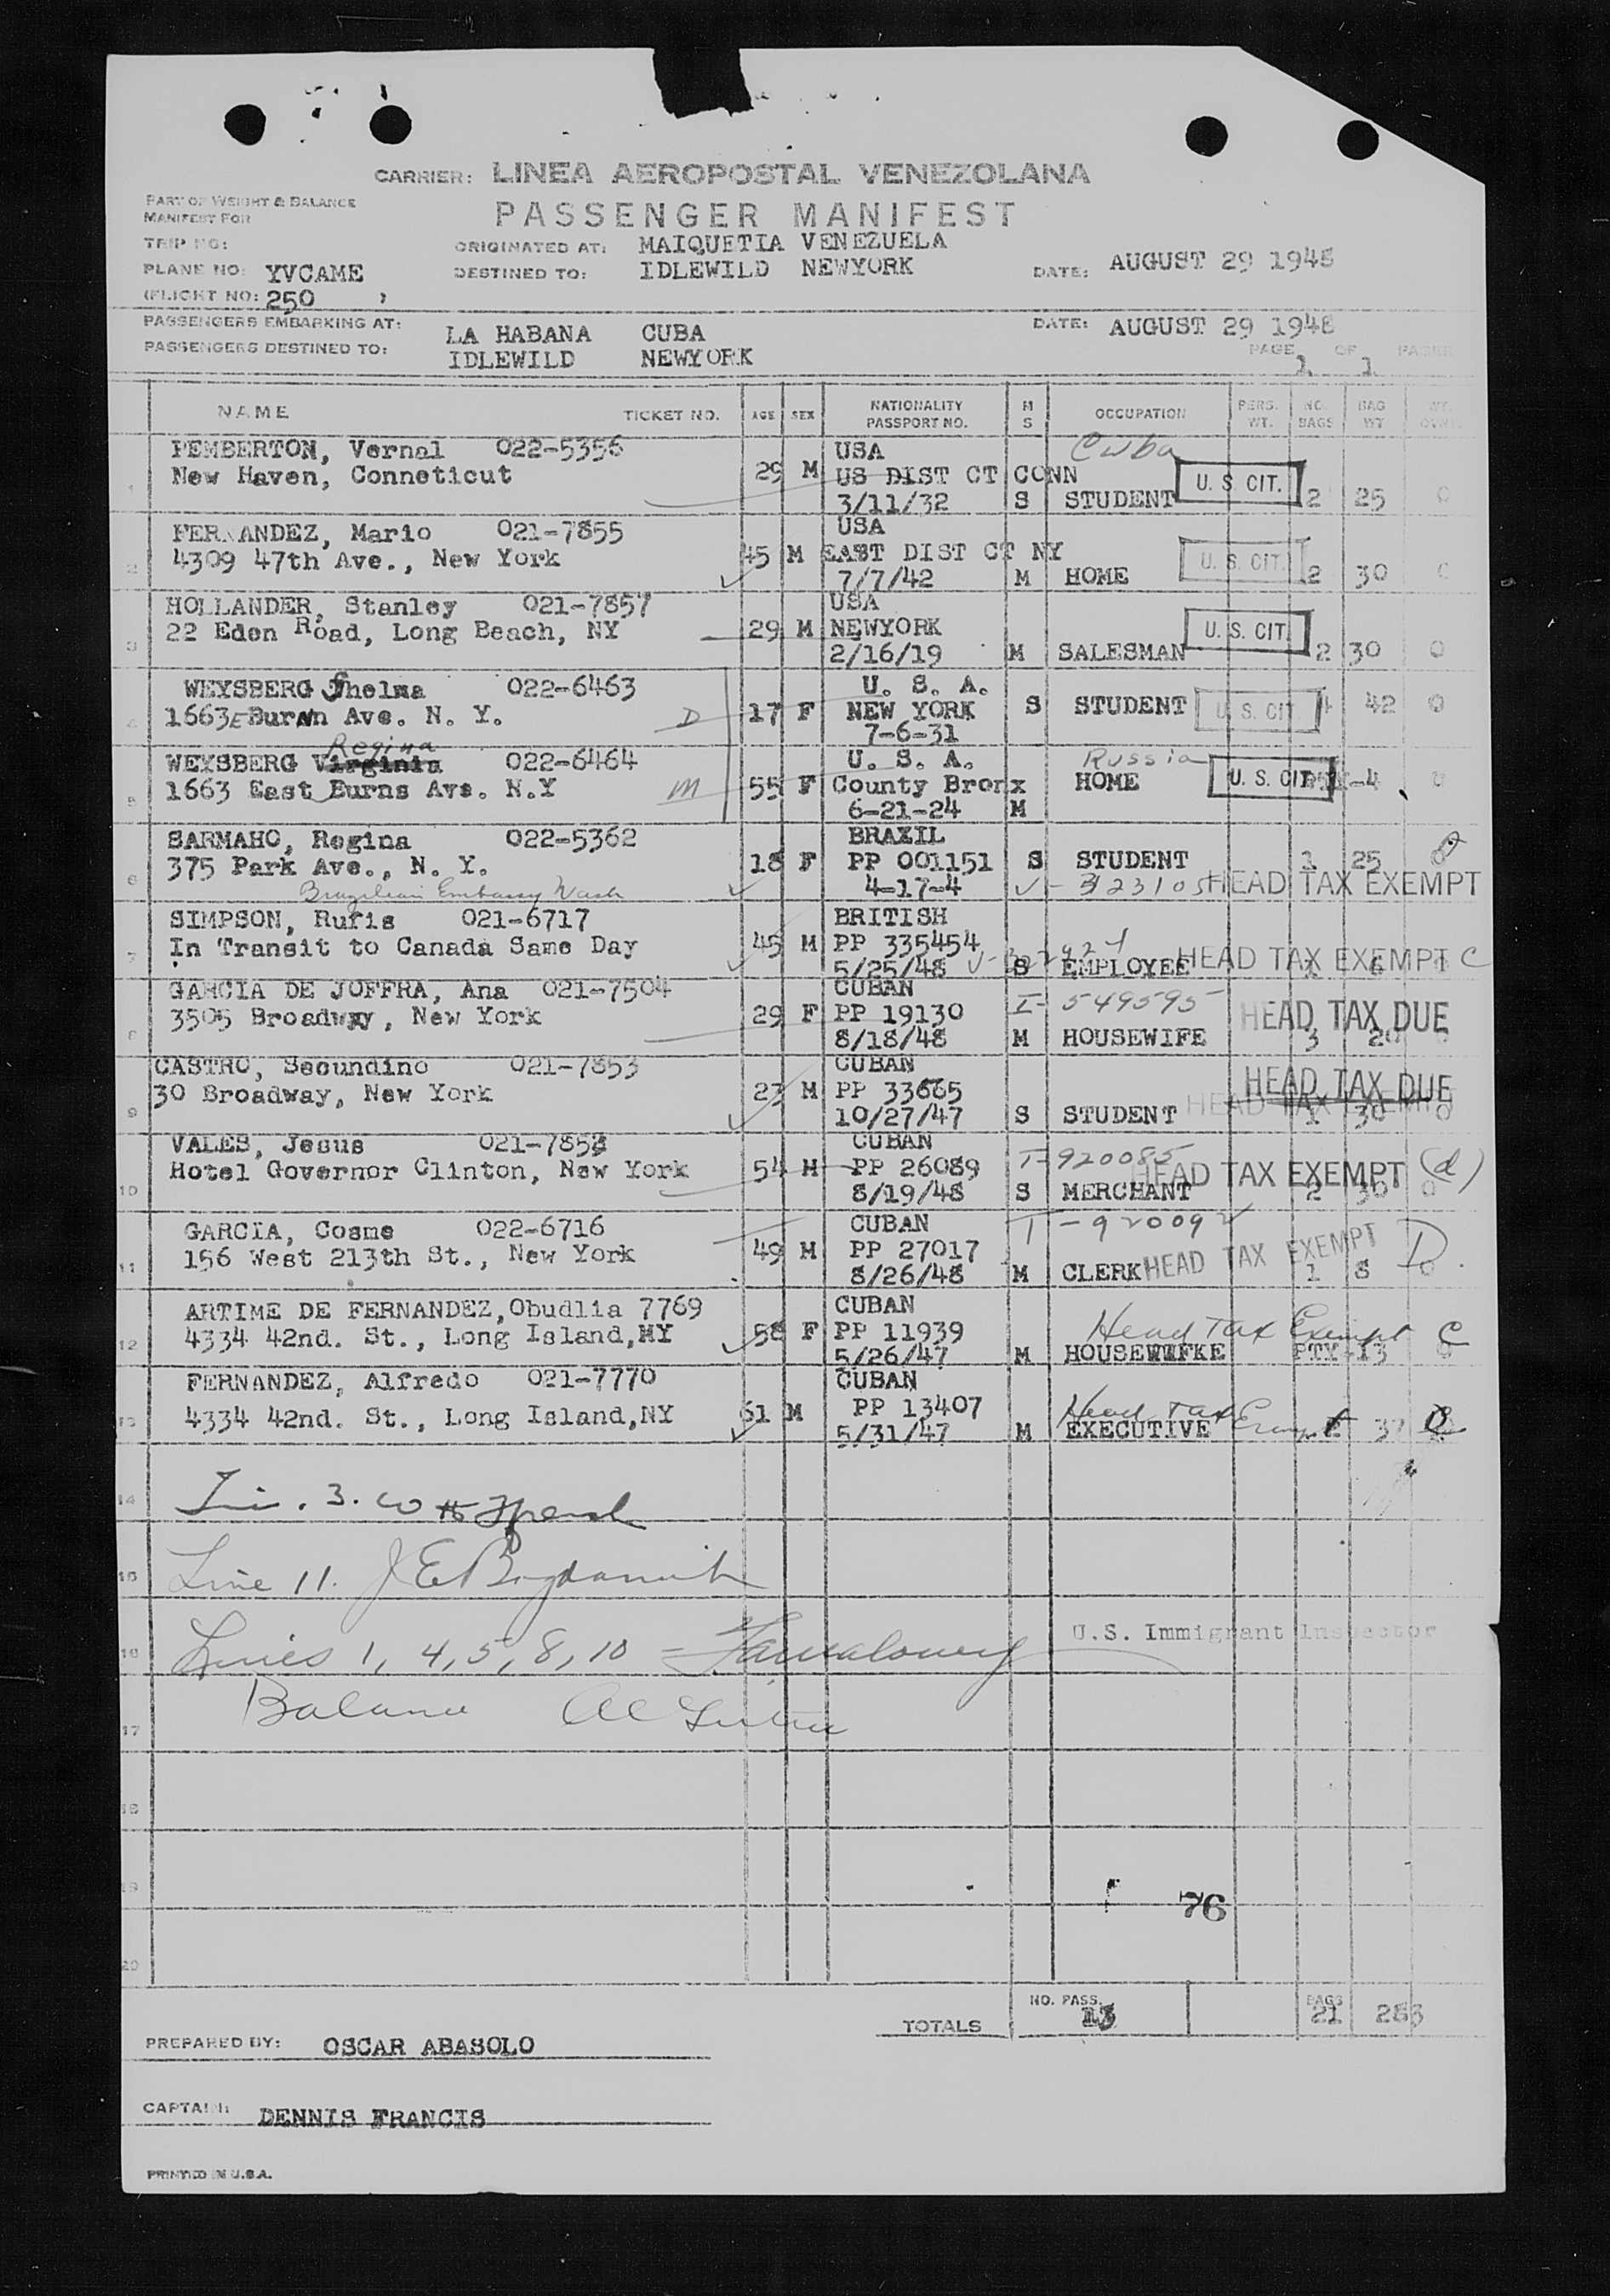 CARRIER: LINEA AEROPOSTAL VENEZOLANA
PART OF WEIGHT & BALANCE
MANIFEST FOR
PASSENGER MANIFEST
TRIP NO:
ORIGINATED AT: MAIQUETIA VENEZUELA
PLANE NO: YVCAME
DESTINED TO: IDLEWILD NEWYORK
DATE: AUGUST 29 1948
(FLIGHT NO: 250 )
PASSENGERS EMBARKING AT: LA HABANA CUBA
DATE: AUGUST 29 1948
PASSENGERS DESTINED TO: IDLEWILD NEWYORK
PAGE 1 OF 1 PAGES
NAME TICKET NO. AGE SEX NATIONALITY PASSPORT NO. M S OCCUPATION PERS. WT. NO. BAGS BAG WT
1 PEMBERTON, Vernal 022-5356 USA Cuba
New Haven, Conneticut 29 M US DIST CT CONN U. S. CIT.
3/11/32 S STUDENT 2 25 0
2 FERNANDEZ, Mario 021-7855 USA
4309 47th Ave., New York 45 M EAST DIST CT NY U. S. CIT.
7/7/42 M HOME 2 30 0
3 HOLLANDER, Stanley 021-7857 USA
22 Eden Road, Long Beach, NY 29 M NEWYORK U. S. CIT.
2/16/19 M SALESMAN 2 30 0
4 WEYSBERG Thelma 022-6463 U. S. A.
1663 E Burnn Ave. N. Y. D 17 F NEW YORK S STUDENT U. S. CIT 42 0
7-6-31
Regina
5 WEYSBERG Virginia 022-6464 U. S. A. Russia
1663 East Burns Ave. N.Y M 55 F County Bronx HOME U. S. CIT -4 0
6-21-24 M
6 SARMAHO, Regina 022-5362 BRAXIL
375 Park Ave., N. Y. 18 F PP 001151 S STUDENT 1 25 0
Brazilian Embassy Wash 4-17-4 HEAD TAX EXEMPT
7 SIMPSON, Rufis 021-6717 BRITISH
In Transit to Canada Same Day 45 M PP 335454
5/25/48 S EMPLOYEE HEAD TAX EXEMPT C
8 GARCIA DE JOFFRA, Ana 021-7504 CUBAN I-549595
3505 Broadway, New York 29 F PP 19130 HEAD TAX DUE
8/18/48 M HOUSEWIFE 3 20 0
9 CASTRO, Secundino 021-7853 CUBAN
30 Broadway, New York 23 M PP 33665 HEAD TAX DUE
10/27/47 S STUDENT HEAD TAX EXEMPT 1 30 0
10 VALES, Jesus 021-7853 CUBAN
Hotel Governor Clinton, New York 54 M PP 26089 T-920085 HEAD TAX EXEMPT (d)
8/19/48 S MERCHANT 2 30 0
11 GARCIA, Cosme 022-6716 CUBAN T-920092
156 West 213th St., New York 49 M PP 27017
8/26/48 M CLERK HEAD TAX EXEMPT D 1 8 0
12 ARTIME DE FERNANDEZ, Obudlia 7769 CUBAN
4334 42nd. St., Long Island, NY 58 F PP 11939 Head Tax Exempt C
5/26/47 M PTY-13
13 FERNANDEZ, Alfredo 021-7770 CUBAN
4334 42nd. St., Long Island, NY 61 M PP 13407 Head Tax
5/31/47 M EXECUTIVE 37
14 3.
15 Line 11.
16 Lines 1, 4, 5, 8, 10 = U.S. Immigrant Inspector
17 Balance
18
19
76
20
TOTALS NO. PASS. 13 BAGS 21 283
PREPARED BY: OSCAR ABASOLO
CAPTAIN: DENNIS FRANCIS
PRINTED IN U.S.A.